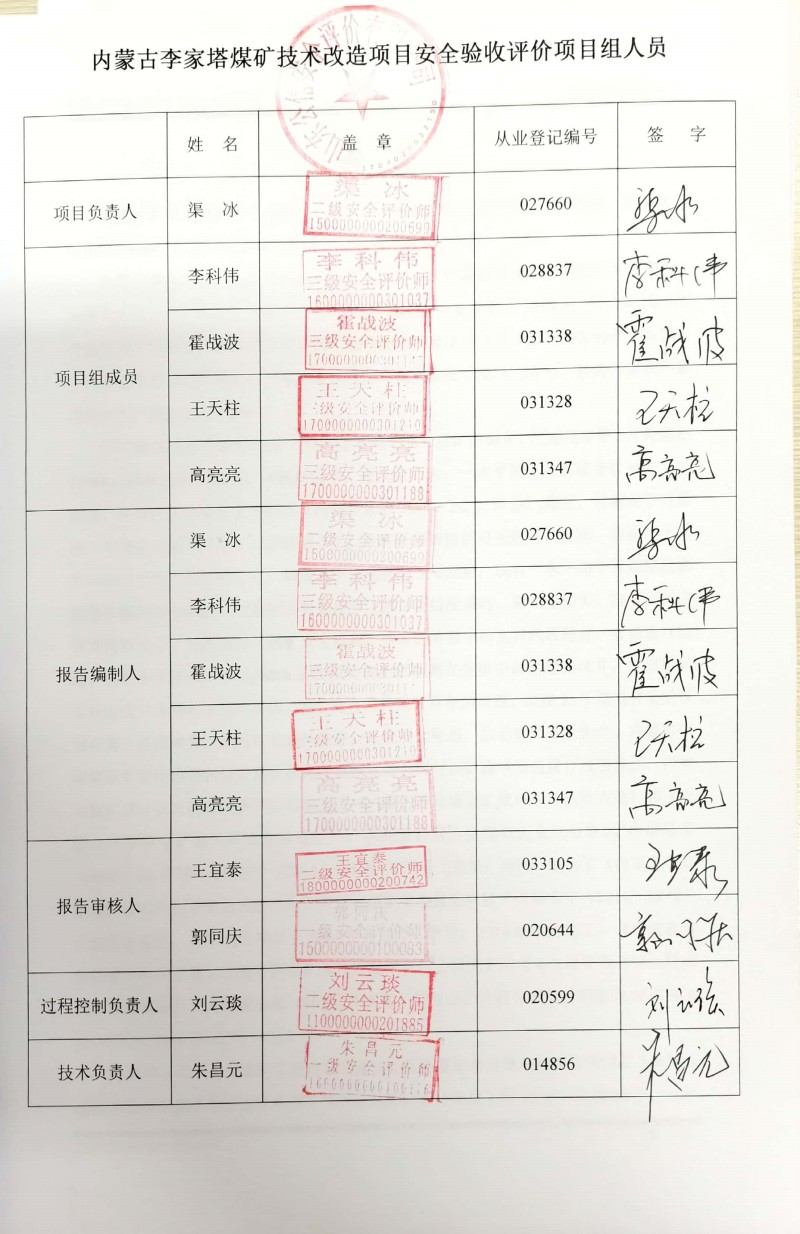 内蒙古李家塔煤矿技术改造项目安全验收评价项目组人员
姓 名 盖 章 从业登记编号 签 字
项目负责人 渠 冰 渠 冰 027660 渠冰
二级安全评价师
1500000000200690
项目组成员
李科伟 李科伟 028837 李科伟
三级安全评价师
1600000000301037
霍战波 霍战波 031338 霍战波
三级安全评价师
王天柱 王天柱 031328 王天柱
三级安全评价师
1700000000301210
高亮亮 高亮亮 031347 高亮亮
三级安全评价师
1700000000301188
报告编制人
渠 冰 渠 冰 027660 渠冰
二级安全评价师
1500000000200690
李科伟 李科伟 028837 李科伟
三级安全评价师
1600000000301037
霍战波 霍战波 031338 霍战波
三级安全评价师
王天柱 王天柱 031328 王天柱
三级安全评价师
1700000000301210
高亮亮 高亮亮 031347 高亮亮
三级安全评价师
1700000000301188
报告审核人
王宜泰 王宜泰 033105 王宜泰
二级安全评价师
1800000000200742
郭同庆 郭同庆 020644 郭同庆
一级安全评价师
1500000000100083
过程控制负责人 刘云琰 刘云琰 020599 刘云琰
二级安全评价师
1100000000201885
技术负责人 朱昌元 朱昌元 014856 朱昌元
一级安全评价师